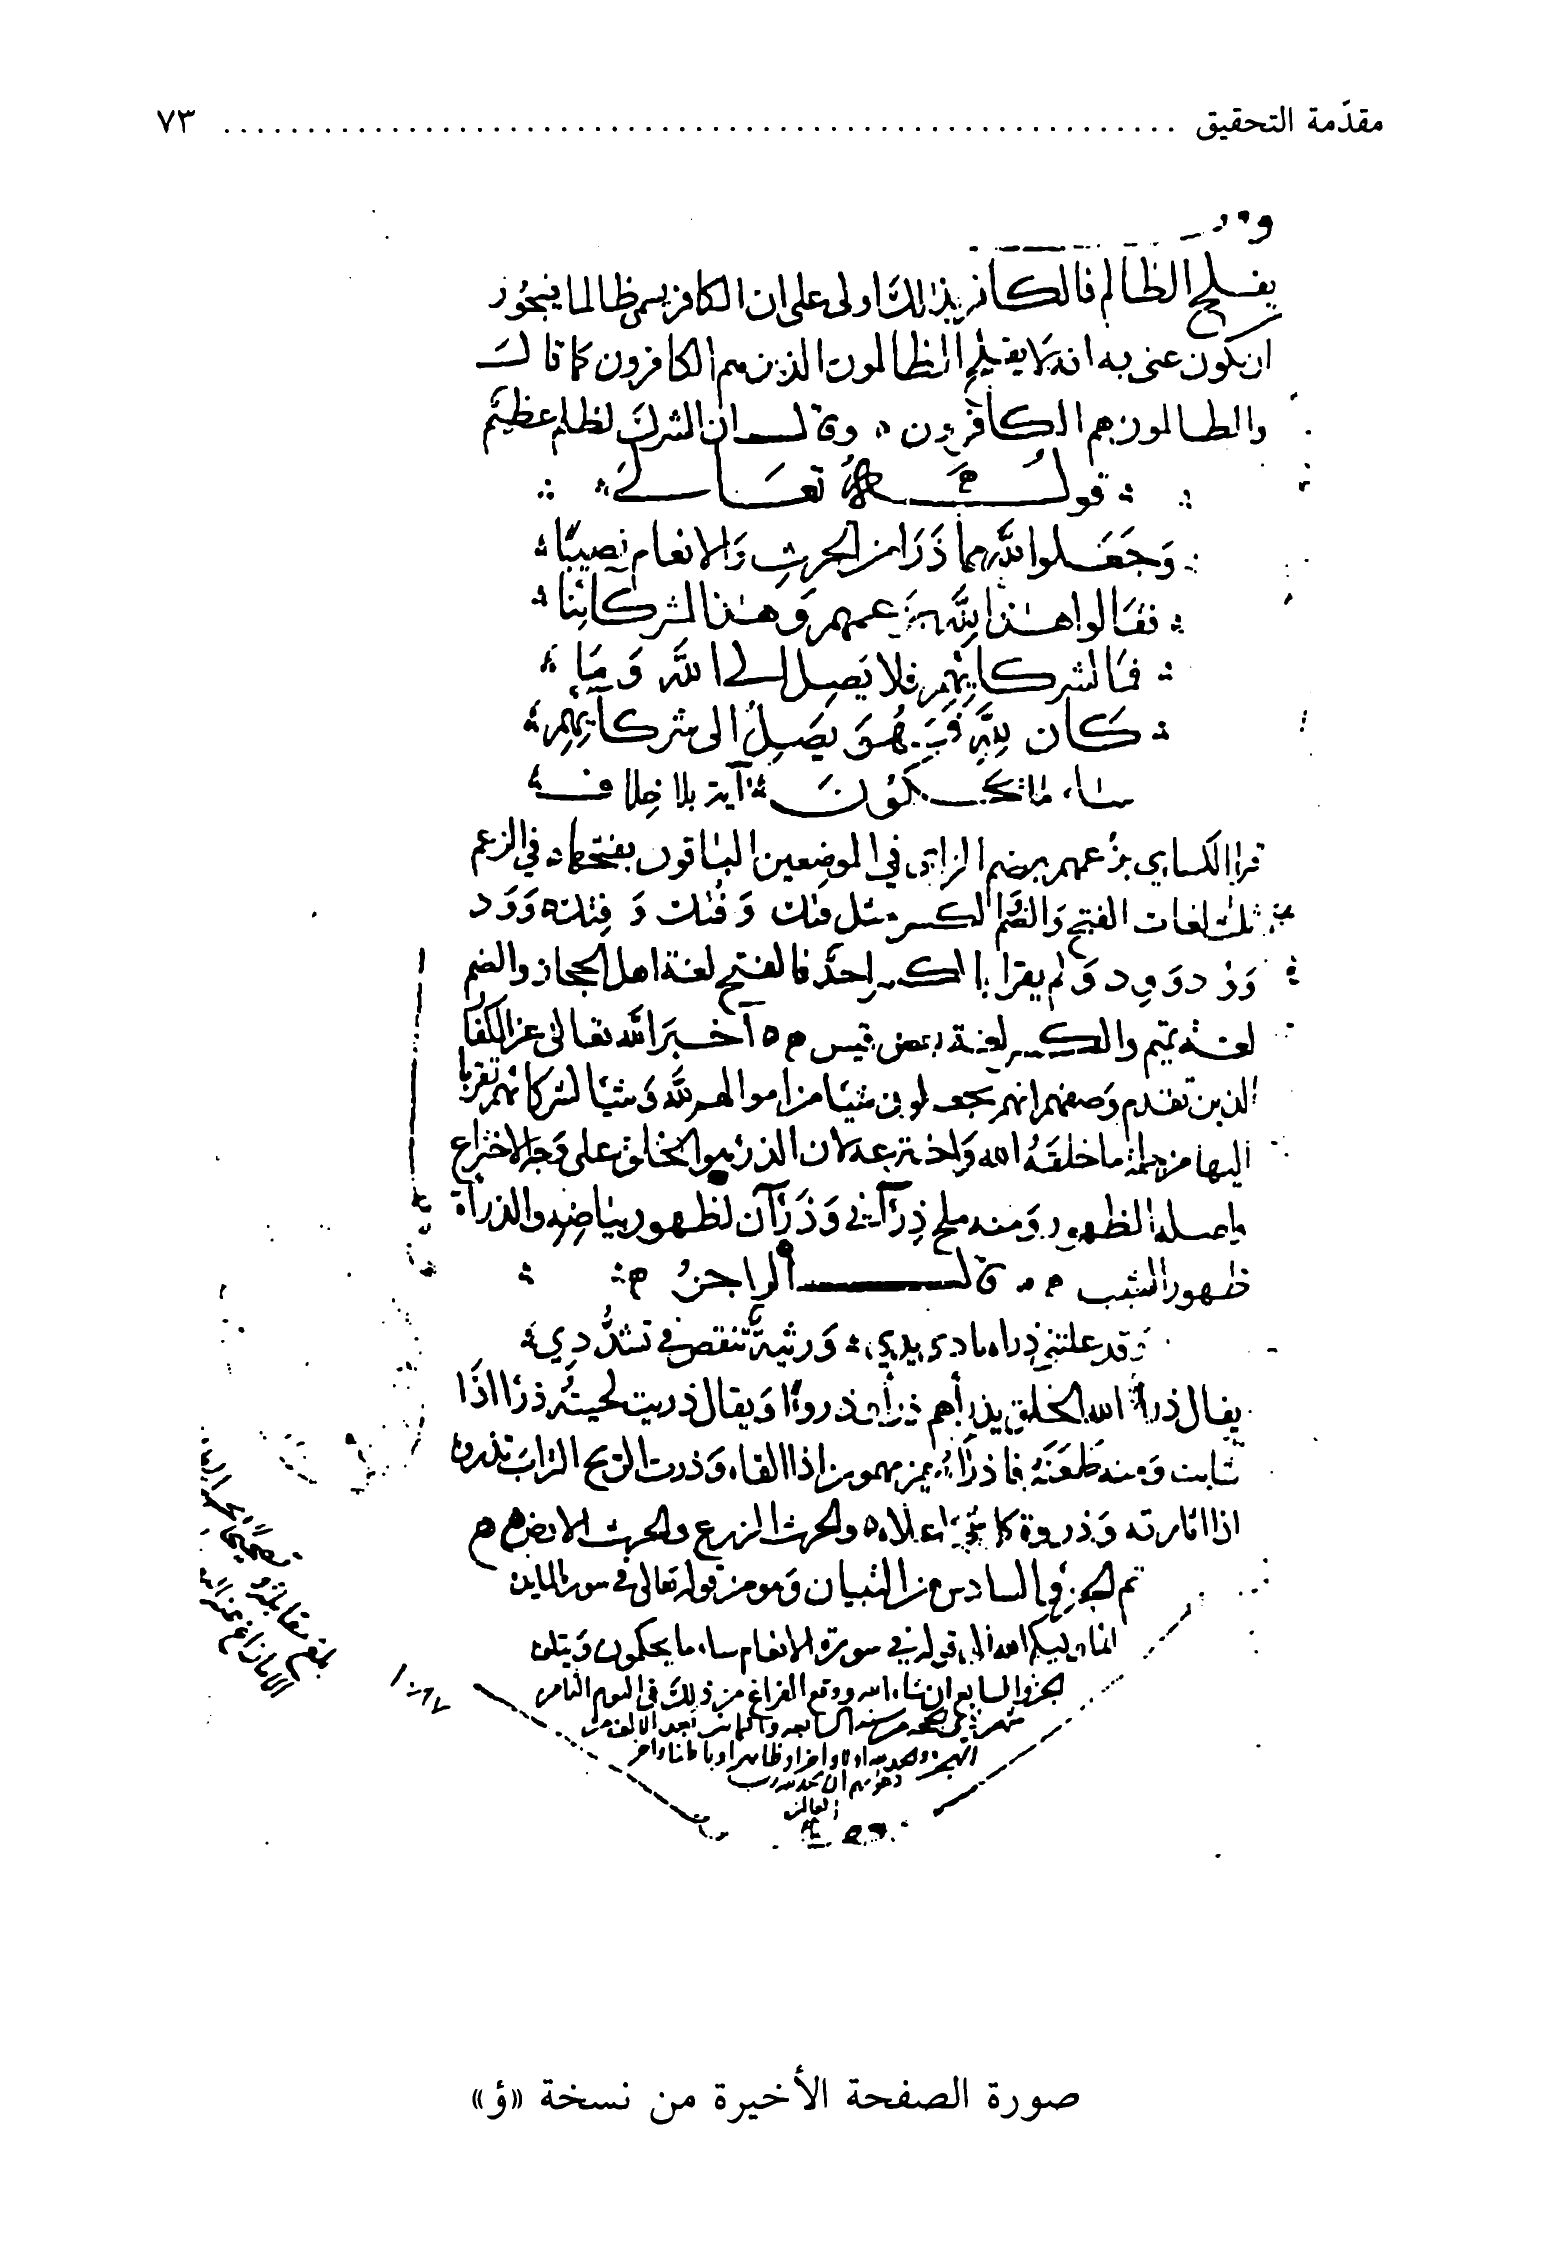 مقدّمة التحقيق ........................................................ ٧٣
يفلح الظالم فالكافر بذلك اولى على ان الكافر يسمى ظالما فيجوز
ان يكون عنى به انه لا يفلح الظالمون الذين هم الكافرون كما قال
والظالمون هم الكافرون وقال ان الشرك لظلم عظيم
قوله تعالى
وَجَعَلوا لله مما ذَرَا من الحرثِ وَالانعام نصيبًا
فقالوا هذا لِلّه بزعمهم وَهذا لشركائنا
فمَا لشركائهِم فلا يَصِل الى الله وَمَا
كَان لِلّهِ فَهُوَ يصَلُ الى شركائهِم
ساء ما يحكمُونَ آية بلا خلاف
قرا الكسايي بزُعمهم بضم الزاي في الموضعين الباقون بفتحها في الزعم
ثلث لغات الفتح وَالضم والكسر مثل فتك وَفُتك وَفِتك وَوَد
وَوُد وَوِد وَلم يقرا بالكسر احد فالفتح لغة اهل الحجاز والضم
لغة تميم والكسر لغة بعض قيس اخبرَ الله تعالى عن الكفار
الذين تقدم وَصفهم انهم يجعلون شيا من اموالهم لله وَشيا لشركائهم تقربا
اليها من جملة ما خلقَهُ الله وَاخترعه لان الذرء هو الخلق على وَجه الاختراع
واصله الظهور وَمنه ملح ذرآني وَذَرْآن لظهور بياضه والذرأة
ظهور الشيب قال الراجز
وَقد علتني ذراة بادي بدي وَرثية تنهض في تشدّدِي
يقال ذرأ الله الخلق يذرأهم ذرأ وذروءا وَيقال ذريت لحيته ذرًا اذَا
شابت وَمنه طَعَنَهُ فاذراه غير مهموز اذا القاه وَذرت الريح التراب تذروه
اذا اثارته وَذروة كل شيء اعلاه والحرث الزرع والحرث الارض
تم الجزء السادس من التبيان وَهو من قوله تعالى في سورة المايدة
انما وليكم الله الى قوله في سورة الانعام ساء ما يحكمون وَيتلوه
الجزء السابع ان شاء الله ووقع الفراغ من ذلك في اليوم الثامن
شهر ذي الحجه من سنه السابعه والثمانين بعد الالف من
الهجره والحمد لله اولا واخرا وظاهرا وباطنا واخر
دعوٰيهم ان الحمد لله رب
العالمين
١٠٨٧
بلغ مقابلة وتصحيحا بحمد الله
صورة الصفحة الأخيرة من نسخة «ؤ»